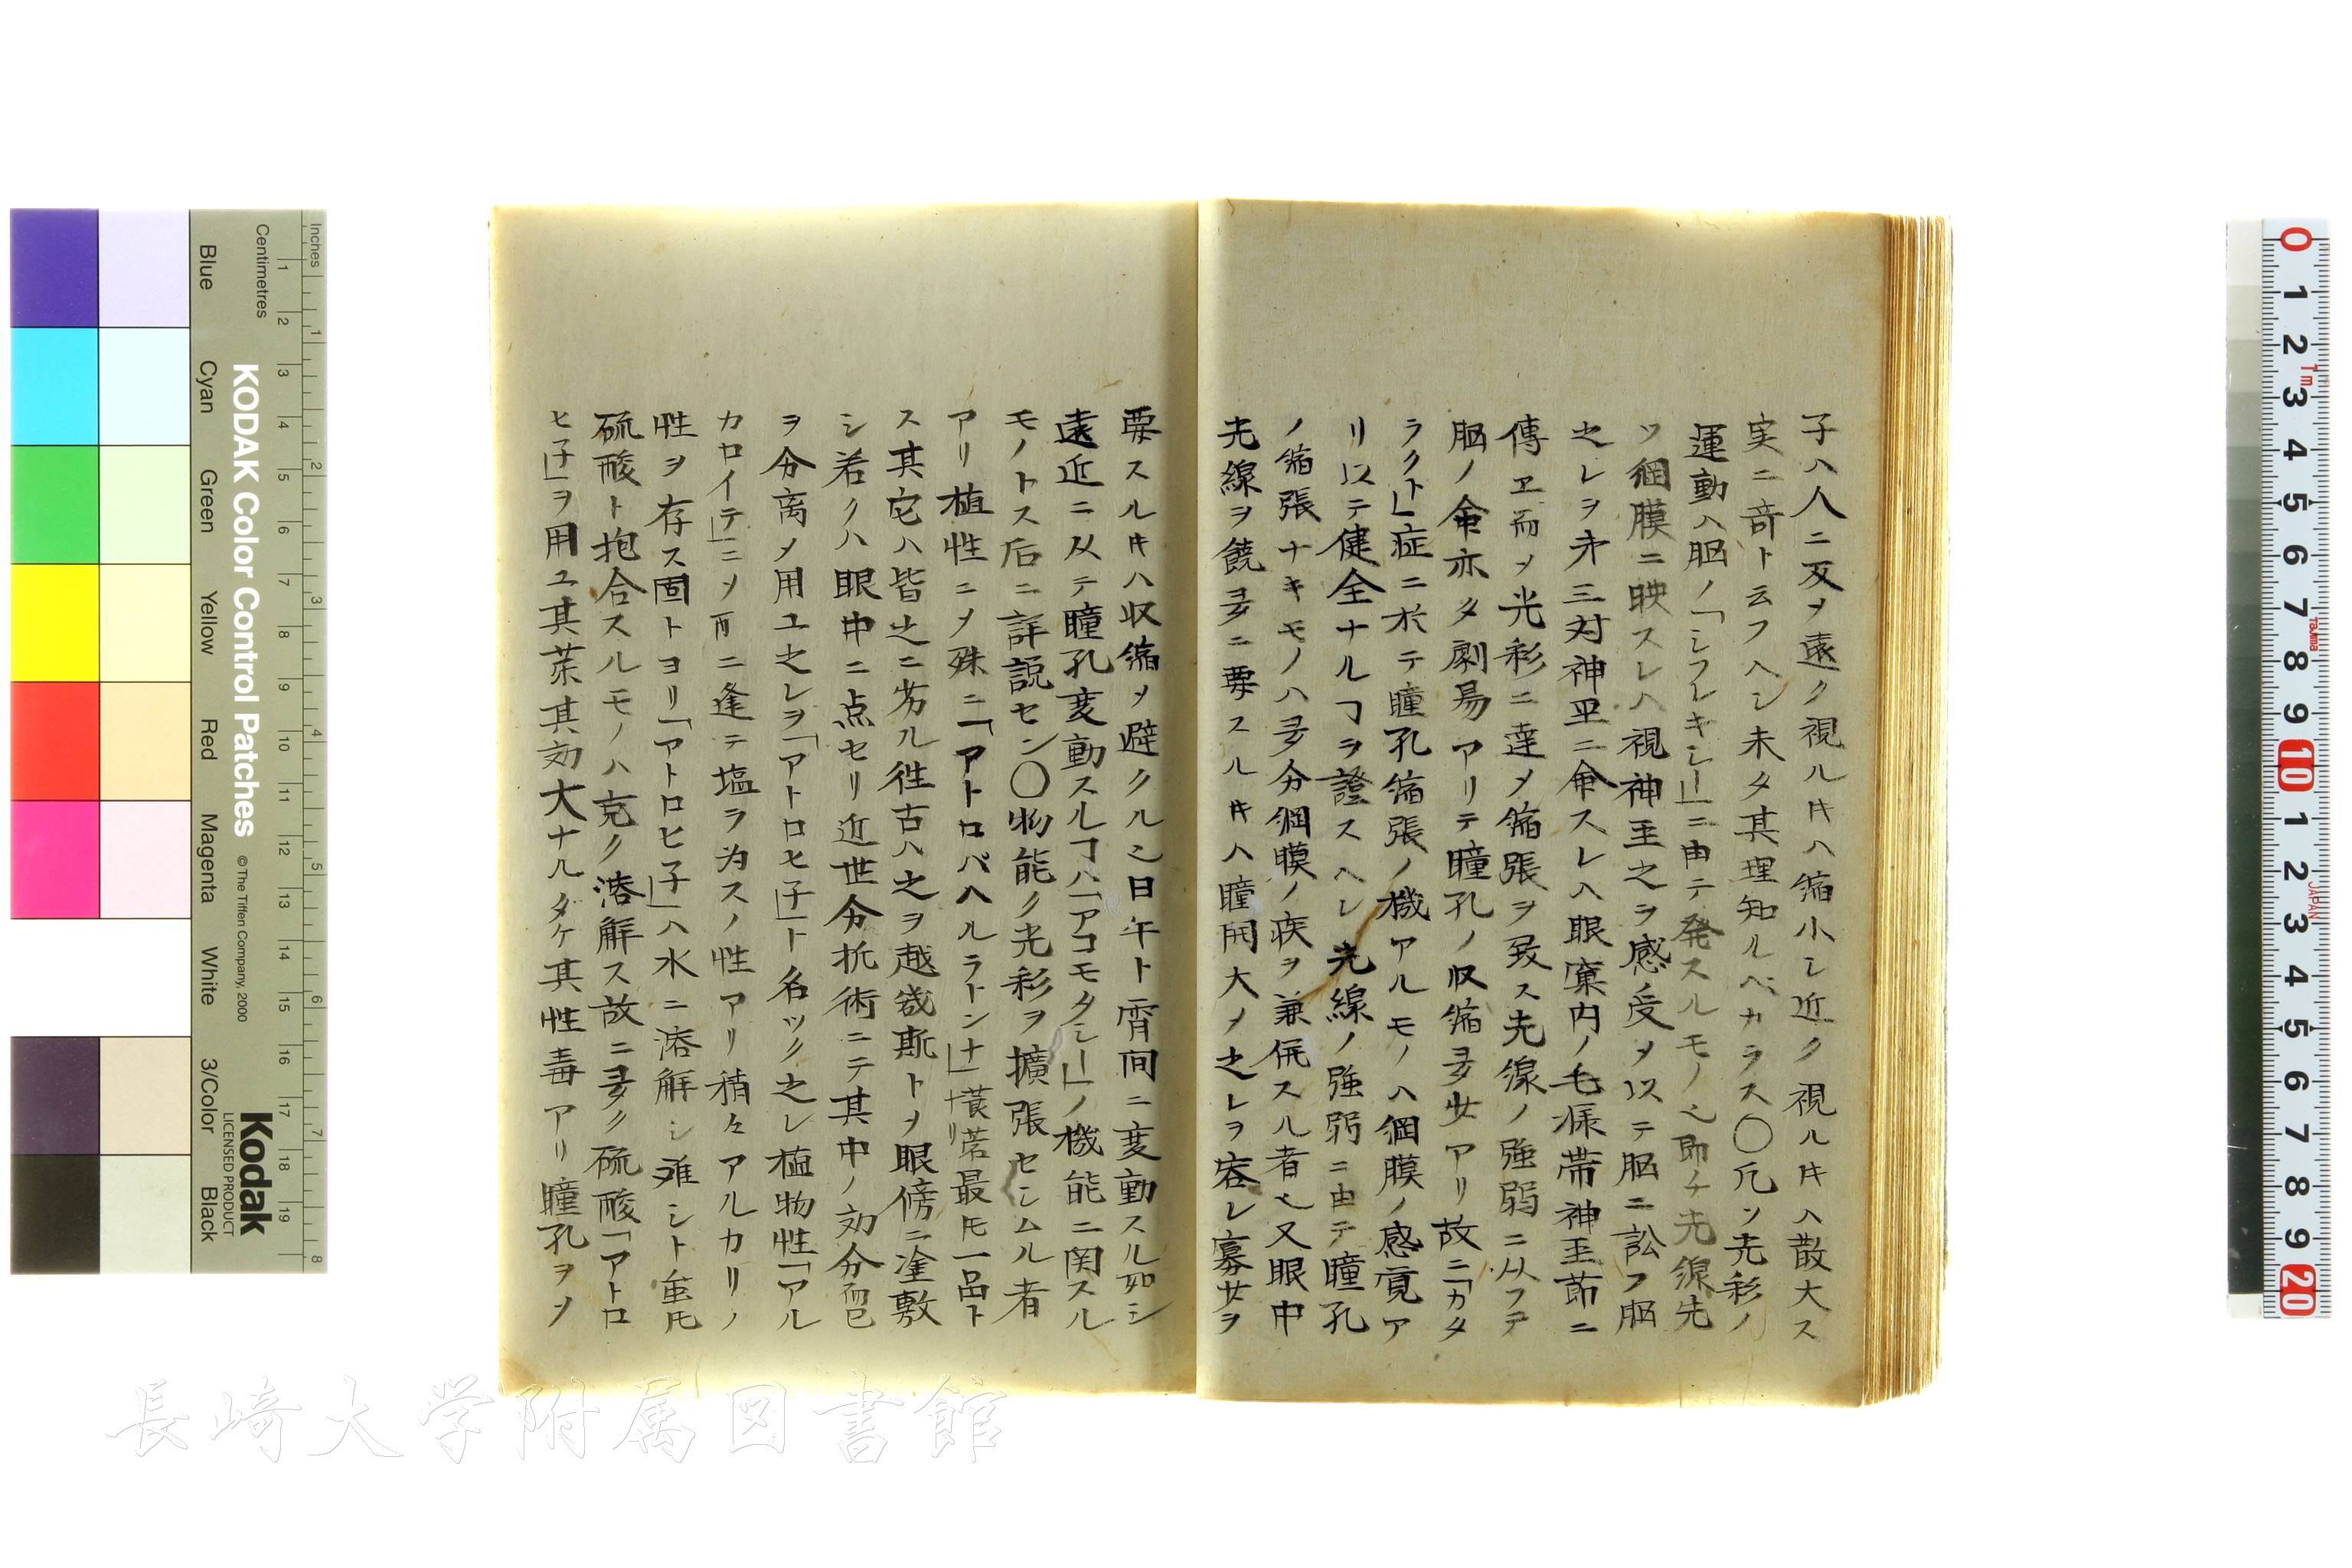 子ハ人ニ反ヲ遠ク視ルキハ縮小シ近ク視ルキハ散大ス
実ニ竒ト云フヘシ未タ其理知ルベカラス〇凡ソ光彩ノ
運動ハ脳ノ「シフレキシー」ニ由テ発スルモノ之即チ光線先
ツ網膜ニ映スレハ視神圣之ヲ感受メ以テ脳ニ訟フ脳
之レヲ第三対神圣ニ命スレハ眼窠内ノ毛様帯神圣節ニ
傳ヱ而ヲ光彩ニ達メ縮張ヲ致ス光線ノ強弱ニ从フテ
脳ノ命亦タ劇易アリテ瞳孔ノ収縮多少アリ故ニ「カタ
ラクト」症ニ於テ瞳孔縮張ノ機アルモノハ網膜ノ感覚ア
リ以テ健全ナルヿヲ證スヘシ光線ノ強弱ニ由テ瞳孔
ノ縮張ナキモノハ多分網膜ノ疾ヲ兼併スル者也又眼中
光線ヲ饒多ニ要スルキハ瞳開大メ之レヲ容レ寡少ヲ
要スルキハ収縮メ避クル之日午ト霄間ニ変動スル如シ
遠近ニ从テ瞳孔変動スルヿハ「アコモタシー」ノ機能ニ関スル
モノトス后ニ詳説セン〇物能ク光彩ヲ擴張セシムル者
アリ植性ニメ殊ニ「アトロバヘルラトンナ」ナリ莨菪最モ一品ト
ス其它ハ皆之ニ劣ル徃古ハ之ヲ越幾斯トメ眼傍ニ塗敷
シ若クハ眼中ニ点セリ近世分拆術ニテ其中ノ効分而已
ヲ分离メ用ユ之レヲ「アトロヒ子」ト名ツク之レ植物性「アル
カロイテ」ニメ酉ニ逢テ塩ヲ為スノ性アリ稍々アルカリノ
性ヲ存ス固トヨリ「アトロヒ子」ハ水ニ溶解シ难シト虽𪜈
硫酸ト抱合スルモノハ克ク溶解ス故ニ多ク硫酸「アトロ
ヒ子」ヲ用ユ其茱其効大ナルタケ其性毒アリ瞳孔ヲメ
Inches
Centimetres
KODAK Color Control Patches
© The Tiffen Company, 2000
Kodak
LICENSED PRODUCT
Blue
Cyan
Green
Yellow
Red
Magenta
White
3/Color
Black
長崎大学附属図書館